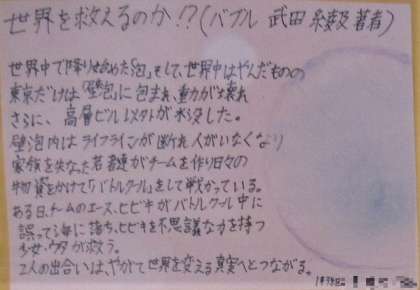 世界を救えるのか!?(バブル 武田 綾乃 著者)
世界中で降り始めた「泡」。そして、世界中はやんだものの
東京だけは「壁泡」に包まれ、重力が壊れ
さらに、高層ビル以外が水没した。
壁泡内はライフラインが断れ人がいなくなり
家族を失なった若者達がチームを作り日々の
物資をかけて「バトルクール」をして戦がっている。
ある日、チームのエース、ヒビキがバトルクール中に
誤って海に落ち、ヒビキを不思議な力を持つ
少女・ウタが救う。
2人の出合いは、やがて世界を変える真実へとつながる。